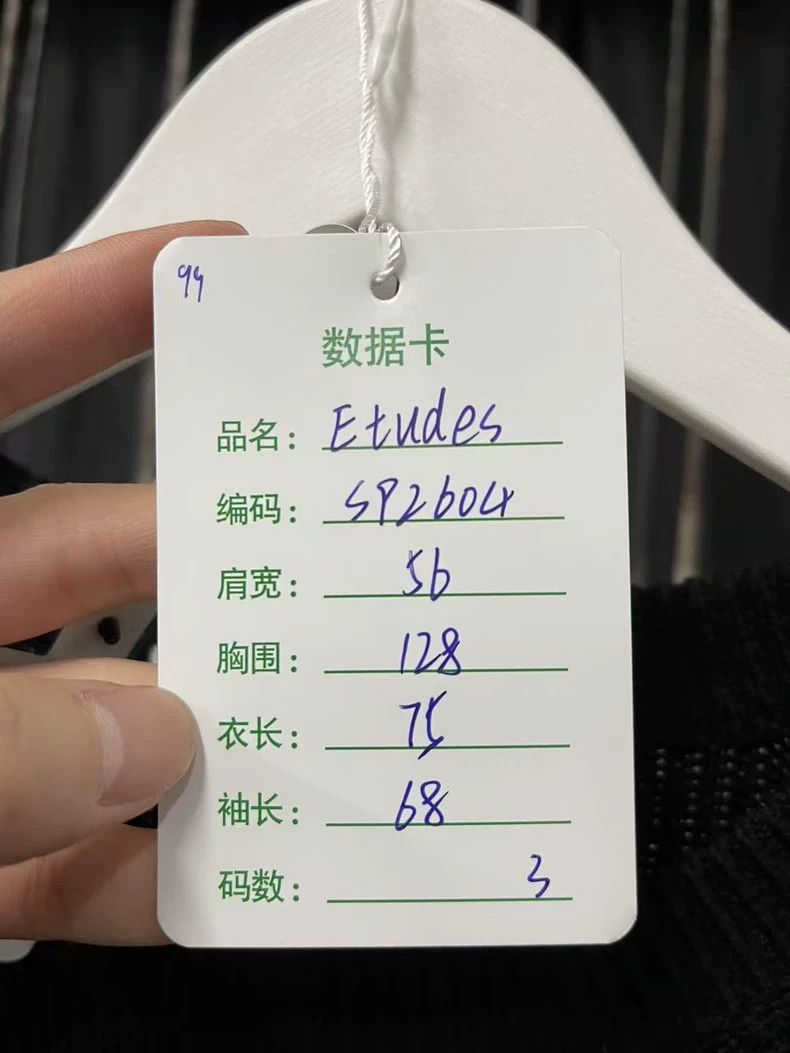 99
数据卡
品名: Etudes
编码: SP2604
肩宽: 56
胸围: 128
衣长: 75
袖长: 68
码数: 3